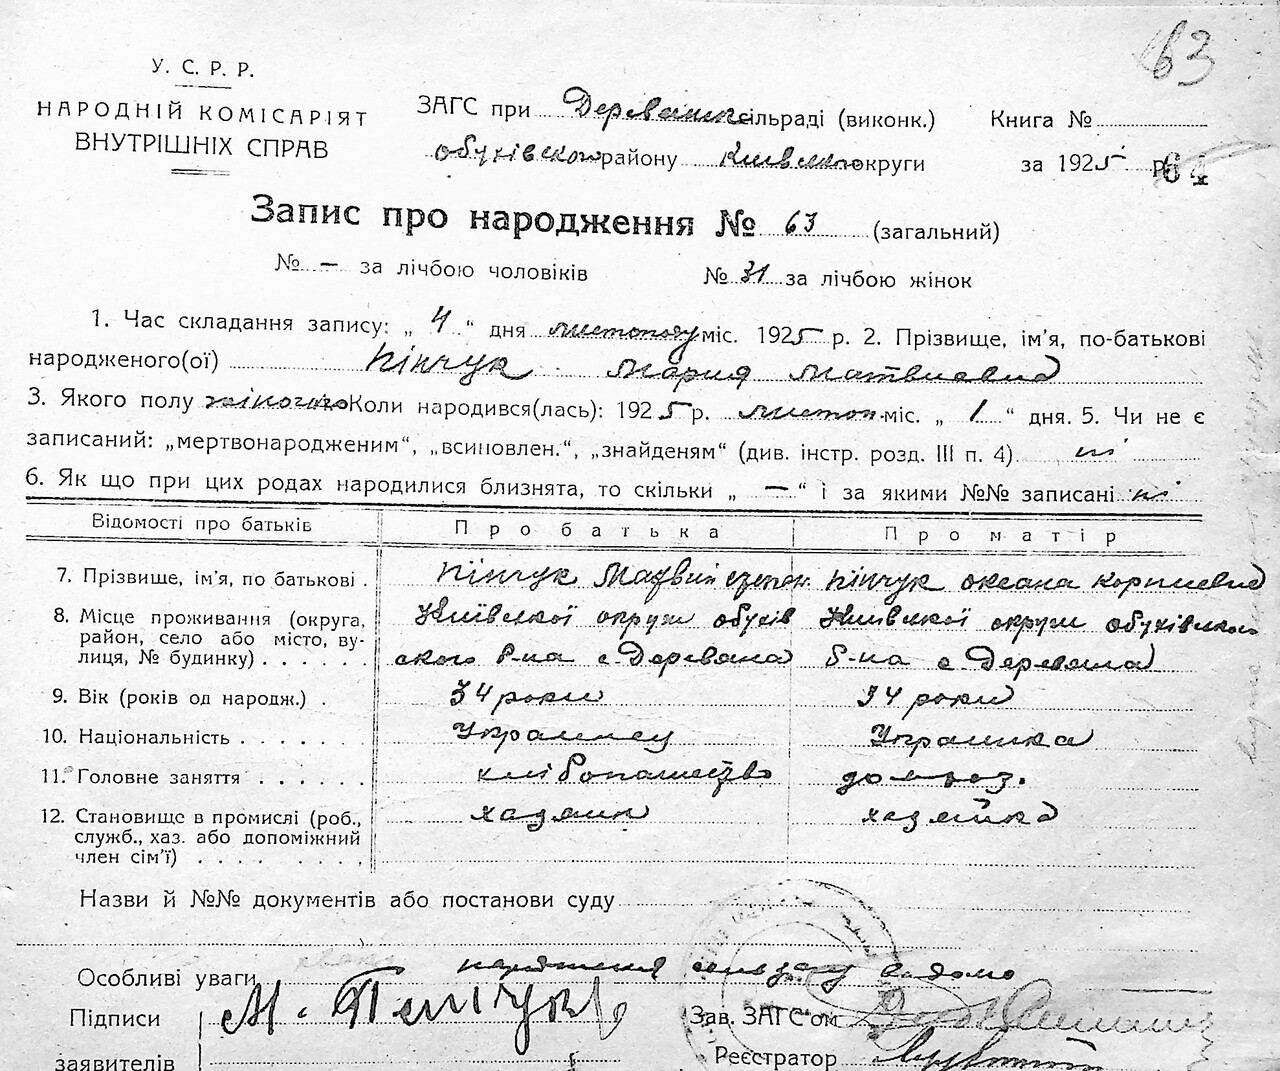 63
У. С. Р. Р.
НАРОДНІЙ КОМІСАРІЯТ
ВНУТРІШНІХ СПРАВ
ЗАГС при Деревянск сільраді (виконк.)
Книга №
обухівского району Київского округи
за 1925 р.
64
Запис про народження № 63 (загальний)
№ – за лічбою чоловіків
№ 31 за лічбою жінок
1. Час складання запису: „ 4 “ дня листопаду міс. 1925 р. 2. Прізвище, ім'я, по-батькові
народженого(ої) Пінчук Мария Матвиевна
3. Якого полу жіночого Коли народився(лась): 1925 р. листоп. міс. „ 1 “ дня. 5. Чи не є
записаний: „мертвонародженим“, „всиновлен.“, „знайденям“ (див. інстр. розд. III п. 4). ні
6. Як що при цих родах народилися близнята, то скільки „ — “ і за якими №№ записані ні
Відомості про батьків
Про батька
Про матір
7. Прізвище, ім'я, по батькові .
Пінчук Матвий
Пінчук Оксана Корниевна
8. Місце проживання (округа,
район, село або місто, ву-
лиця, № будинку) . . . . . .
Київскої округи обухів
ского р-на с Деревяна
Київскої округи обухівского
р-на с Деревяна
9. Вік (років од народж.) .
34 роки
34 роки
10. Національність . . . . . . .
Украинец
Украинка
11. Головне заняття . . . . . .
хліборошество
домгоз.
12. Становище в промислі (роб.,
служб., хаз. або допоміжний
член сім'ї) . . . . . . . . .
хазяин
хазяйка
Назви й №№ документів або постанови суду
Особливі уваги
Підписи
заявителів
М. Пенчук
Зав. ЗАГС'ом
Реєстратор